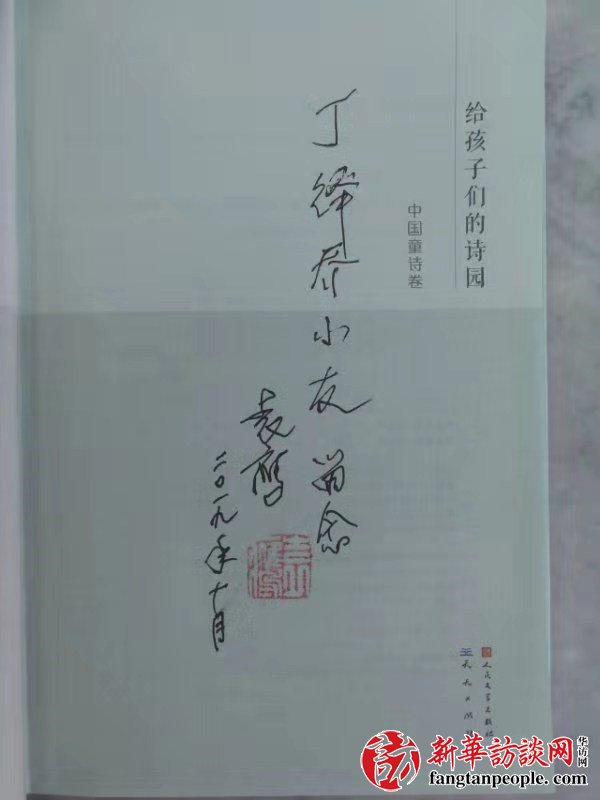 给孩子们的诗园
中国童诗卷
丁绎存小友 留念
袁鹰
二〇一九年十月
人民文学出版社
天天出版社
新華訪談网
华访网
fangtanpeople.com